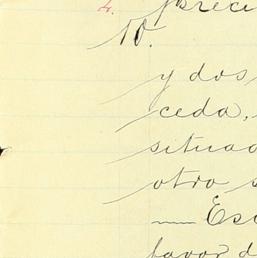 4. preci
10.
y dos
ceda,
situad
otro s
— Es
favor d